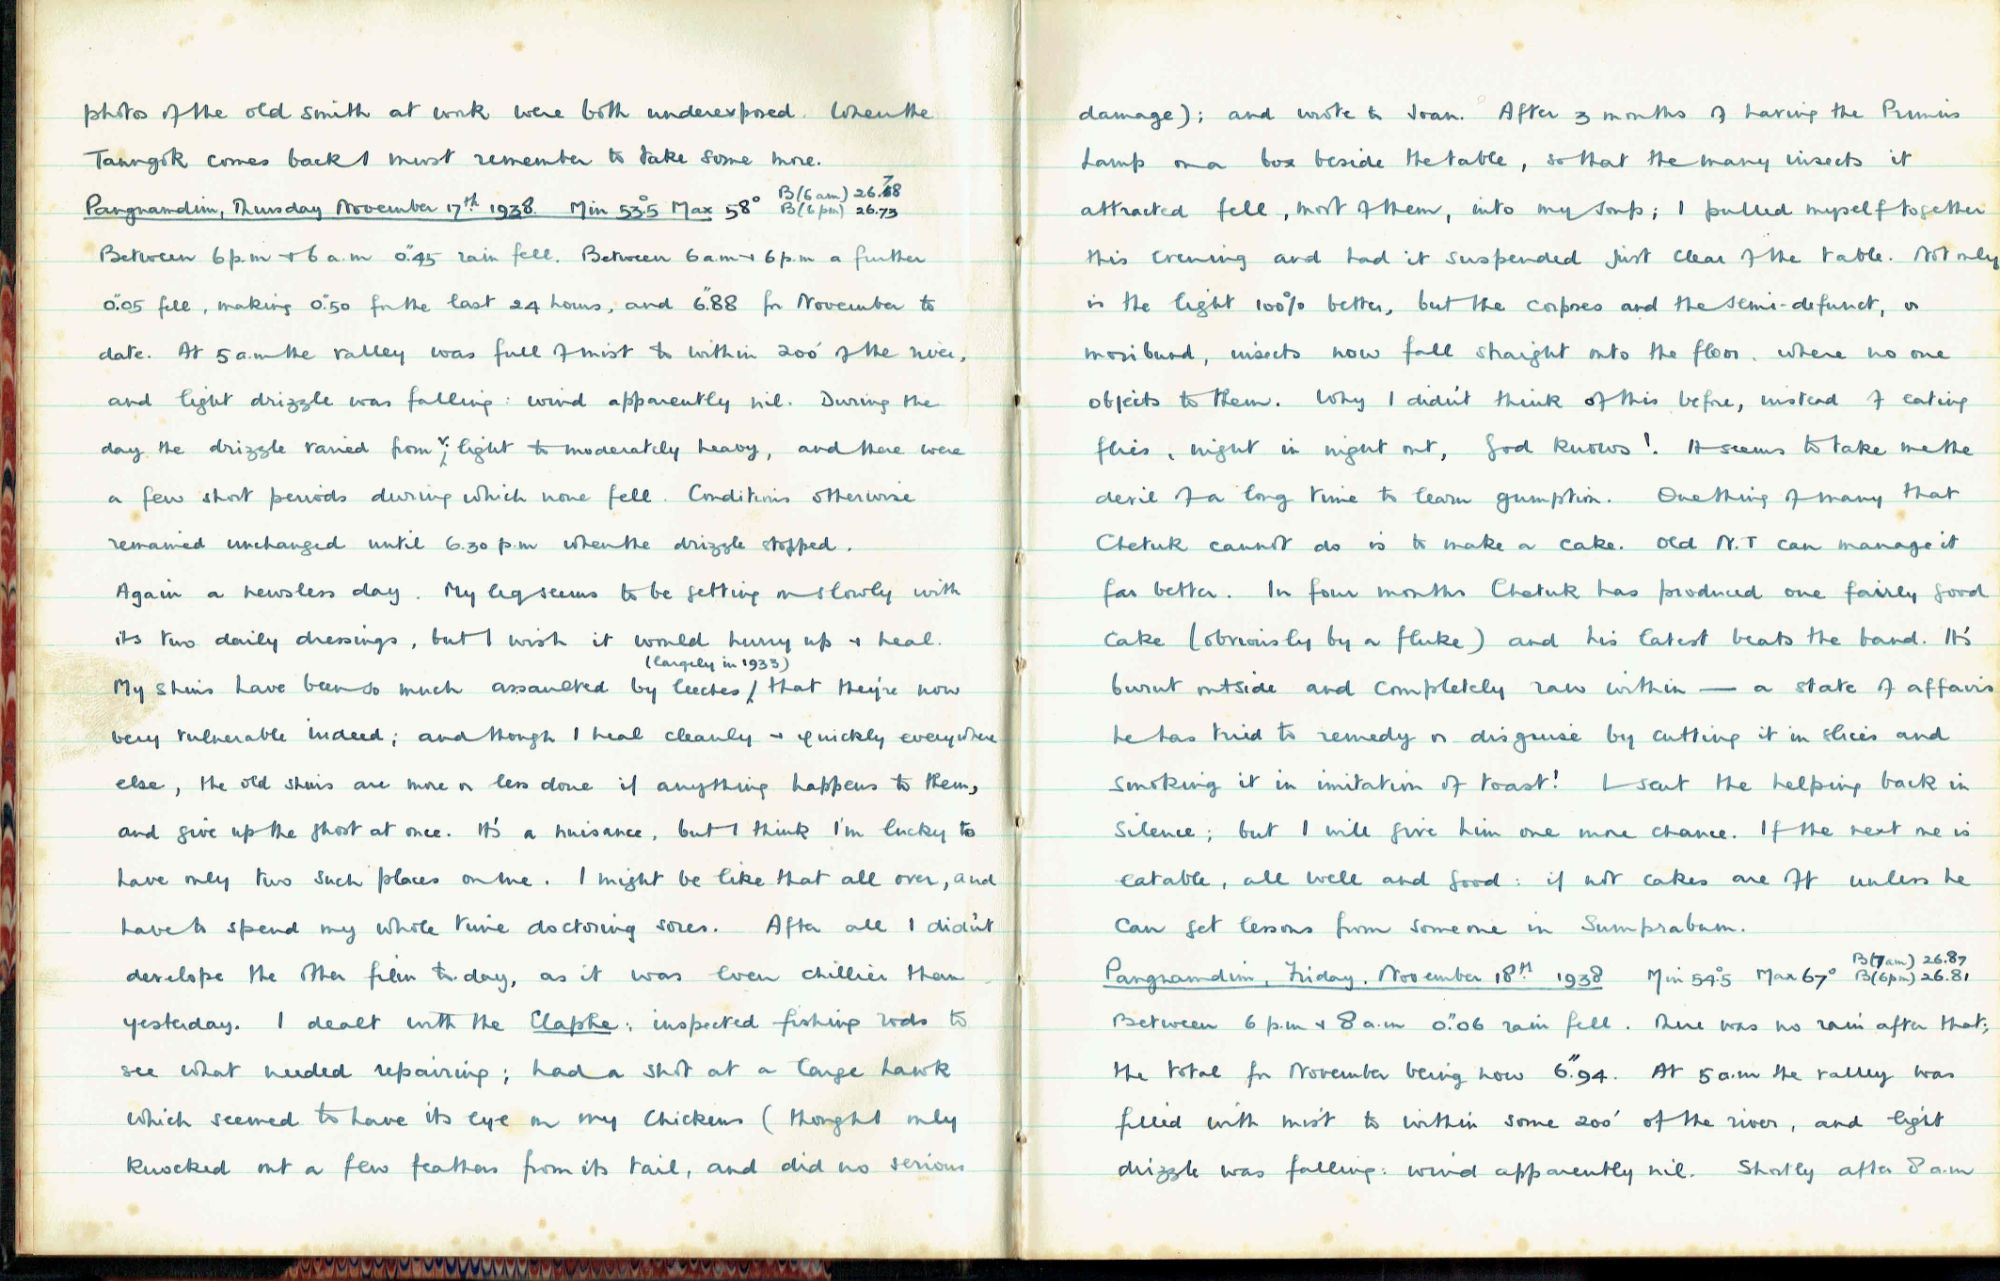 photos of the old smith at work were both underexposed. When the
Taungók comes back I must remember to take some more.
Pangnamdim, Thursday November 17th 1938. Min 53°.5 Max 58° B(6 am) 26.78
B(6 pm) 26.73
Between 6 p.m + 6 a.m 0".45 rain fell. Between 6 a.m + 6 p.m a further
0".05 fell, making 0".50 for the last 24 hours, and 6".88 for November to
date. At 5 a.m the valley was full of mist to within 200' of the river,
and light drizzle was falling: wind apparently nil. During the
day the drizzle varied from v. light to moderately heavy, and there were
a few short periods during which none fell. Conditions otherwise
remained unchanged until 6.30 p.m when the drizzle stopped.
Again a newsless day. My leg seems to be getting on slowly with
its two daily dressings, but I wish it would hurry up + heal.
My shins have been so much assaulted by leeches (largely in 1933) that they're now
very vulnerable indeed; and though I heal cleanly + quickly everywhere
else, the old shins are more or less done if anything happens to them,
and give up the ghost at once. It's a nuisance, but I think I'm lucky to
have only two such places on me. I might be like that all over, and
have to spend my whole time doctoring sores. After all I didn't
develope the other film to-day, as it was even chillier than
yesterday. I dealt with the Elaphe; inspected fishing rods to
see what needed repairing; had a shot at a large hawk
which seemed to have its eye on my chickens (though I only
knocked out a few feathers from its tail, and did no serious
damage); and wrote to Joan. After 3 months of having the Primus
Lamp on a box beside the table, so that the many insects it
attracted fell, most of them, into my soup; I pulled myself together
this evening and had it suspended just clear of the table. Not only
is the light 100% better, but the corpses and the semi-defunct, or
moribund, insects now fall straight onto the floor, where no one
objects to them. Why I didn't think of this before, instead of eating
flies, night in night out, God knows! It seems to take me the
devil of a long time to learn gumption. One thing of many that
Chetuk cannot do is to make a cake. Old N.T can manage it
far better. In four months Chetuk has produced one fairly good
cake (obviously by a fluke) and his latest beats the band. It's
burnt outside and completely raw within — a state of affairs
he has tried to remedy or disguise by cutting it in slices and
smoking it in imitation of toast! I sent the helping back in
silence; but I will give him one more chance. If the next one is
eatable, all well and good: if not cakes are off unless he
can get lessons from someone in Sumprabum.
Pangnamdim, Friday, November 18th 1938 Min 54°.5 Max 67° B(7 am) 26.87
B(6 pm) 26.81
Between 6 p.m + 8 a.m 0".06 rain fell. There was no rain after that;
the total for November being now 6".94. At 5 a.m the valley was
filled with mist to within some 200' of the river, and light
drizzle was falling: wind apparently nil. Shortly after 8 a.m